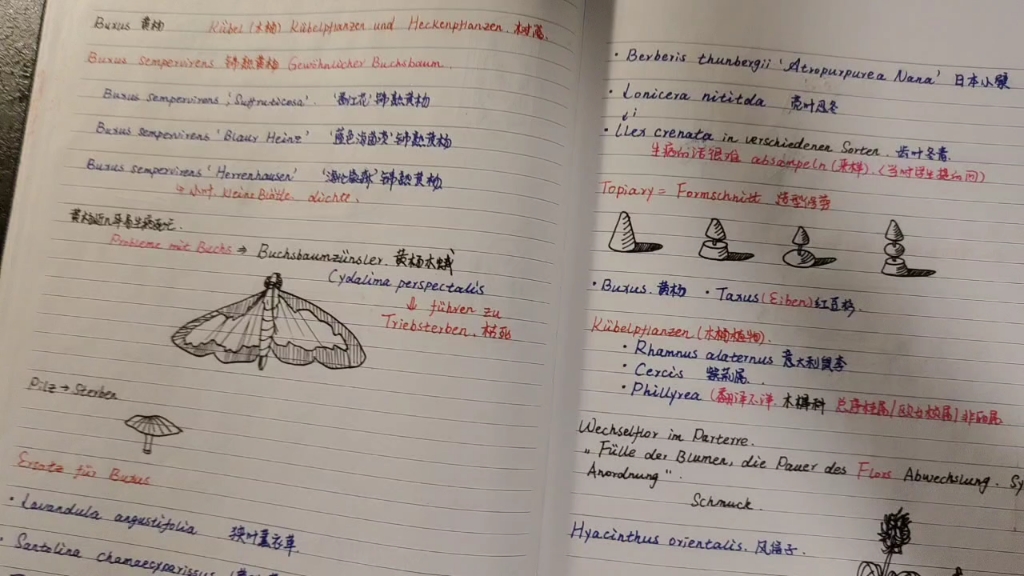 Buxus 黄杨 Kübel (木桶) Kübelpflanzen und Heckenpflanzen. 树篱.
Buxus sempervirens 锦熟黄杨 Gewöhnlicher Buchsbaum.
Buxus sempervirens 'Suffruticosa'. 锦熟黄杨
Buxus sempervirens 'Blauer Heinz' 锦熟黄杨
Buxus sempervirens 'Herrenhausen' 锦熟黄杨
kleine Blätter dichte.
Probleme mit Buchs ⇒ Buchsbaumzünsler. 黄杨木蛾
Cydalima perspectalis
↓ führen zu
Triebsterben. 枯死
Pilz → Sterben
Ersatz für Buxus
• Lavandula angustifolia 狭叶薰衣草.
• Santolina chamaecyparissus
• Berberis thunbergii 'Atropurpurea Nana' 日本小檗
• Lonicera nititda 亮叶忍冬
i
• Ilex crenata in verschiedenen Sorten. 齿叶冬青.
生病的话很难 absampeln (采样).
Topiary = Formschnitt 造型修剪
• Buxus. 黄杨 • Taxus (Eiben) 红豆杉.
Kübelpflanzen (木桶植物).
• Rhamnus alaternus 意大利鼠李
• Cercis 紫荆属.
• Phillyrea (翻译不详. 木樨科
Wechselflor im Parterre.
„Fülle der Blumen, die Dauer des Flors Abwechslung. Sy
Anordnung".
Schmuck.
Hyacinthus orientalis. 风信子.